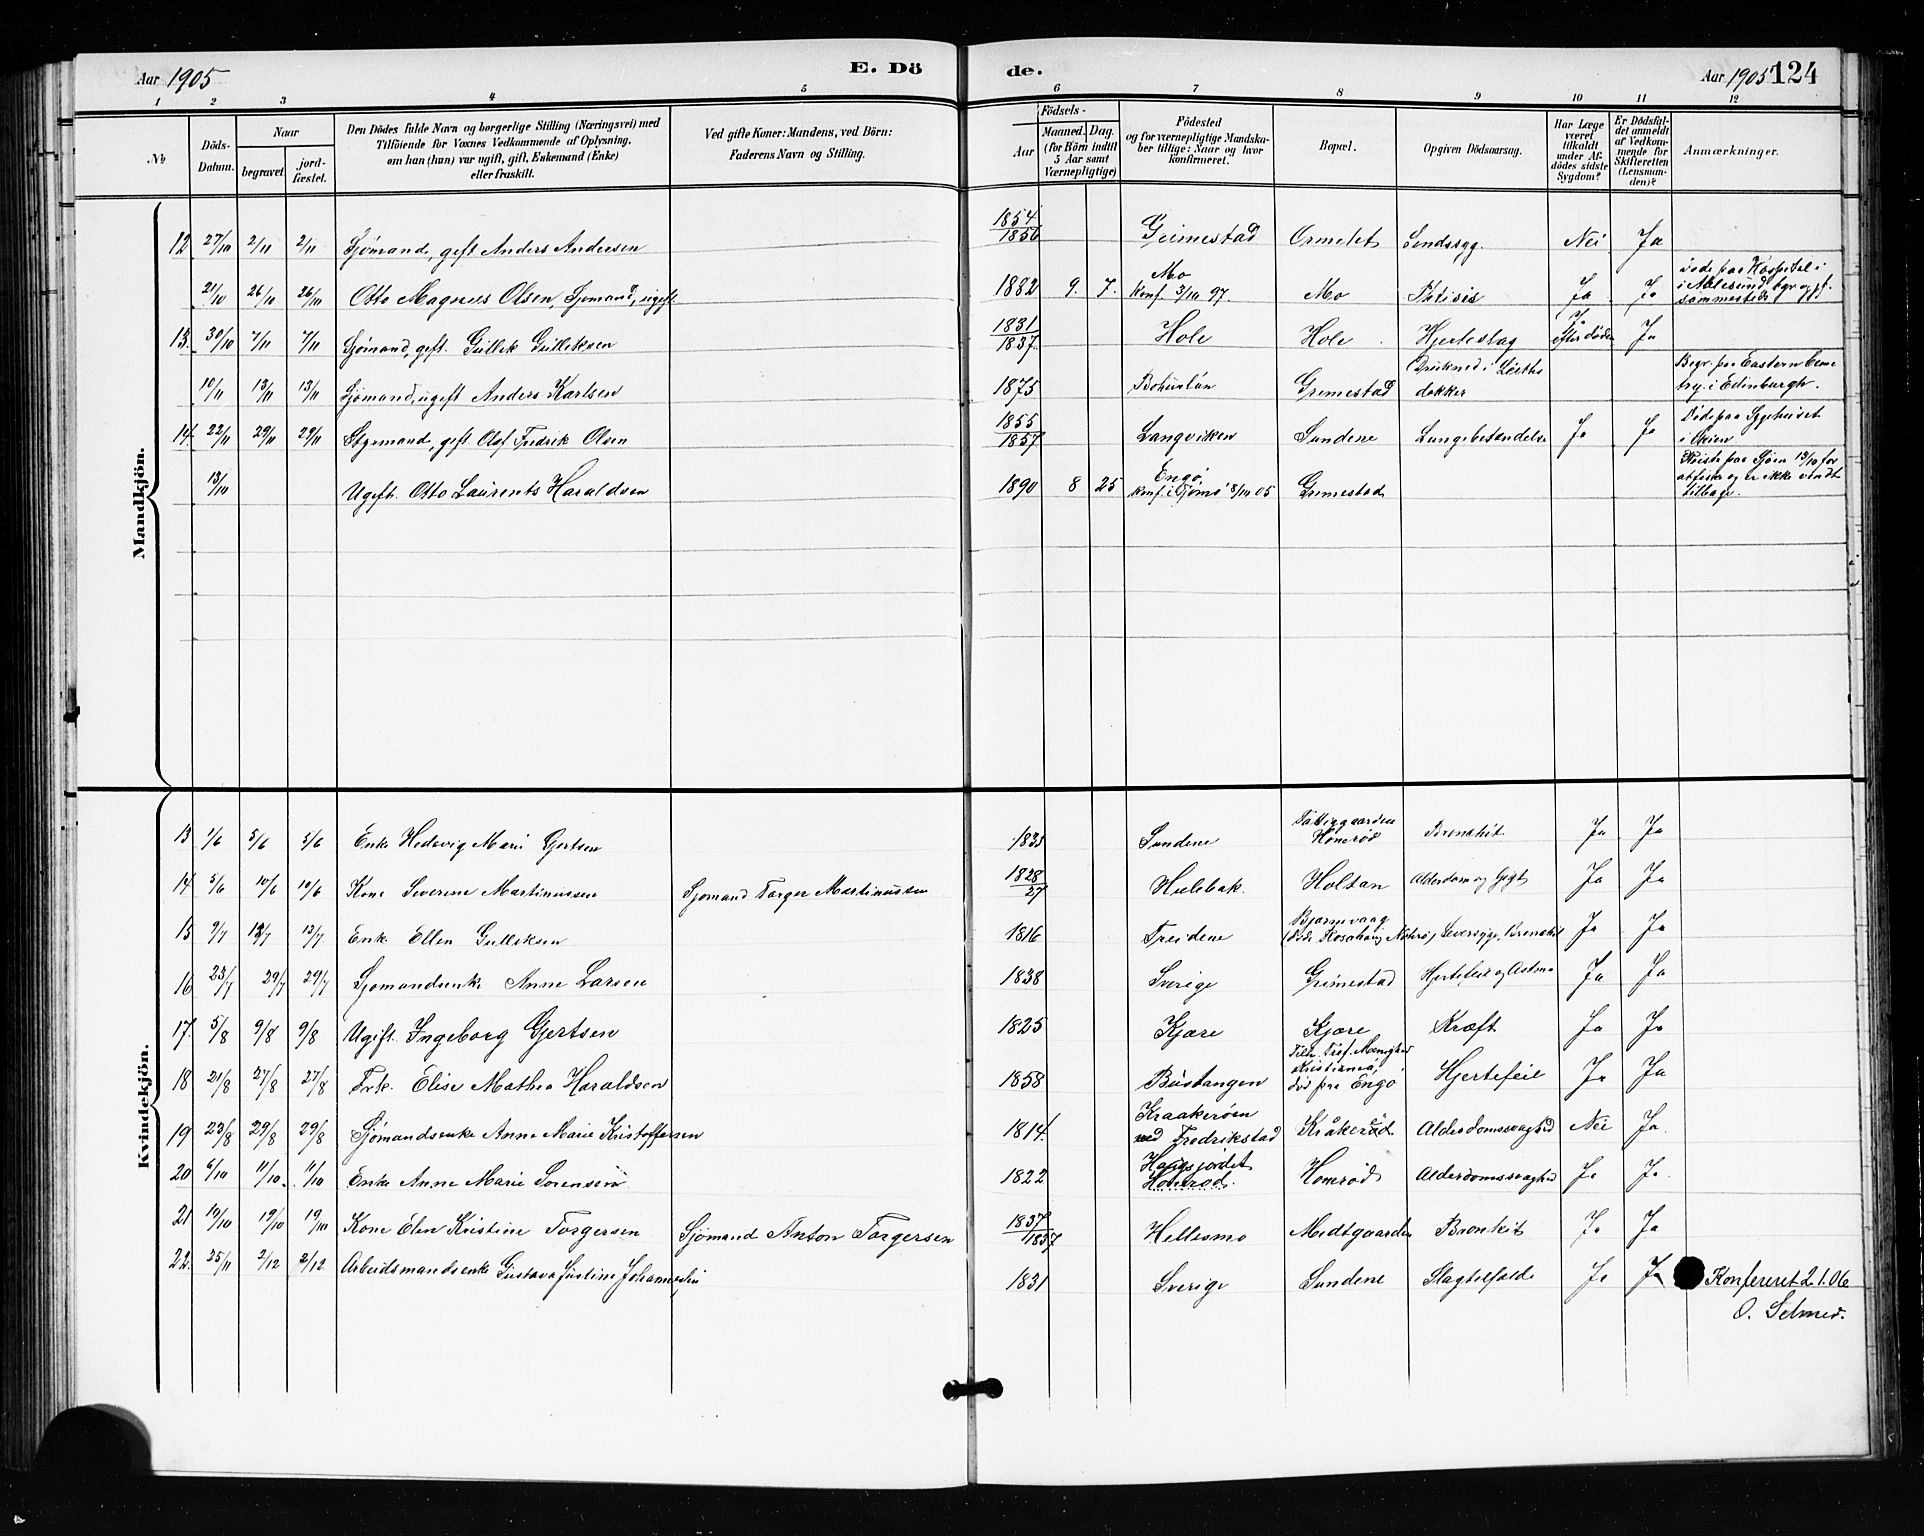 Aar 1905 E. Dö de. Aar 1905 124
1 2 3 4 5 6 7 8 9 10 11 12
№
Döds-Datum.
Naar
begravet.
jord-fæstet.
Den Dödes fulde Navn og borgerlige Stilling (Næringsvei) med
Tilföiende for Voxnes Vedkommende af Oplysning,
om han (hun) var ugift, gift, Enkemand (Enke)
eller fraskilt.
Ved gifte Koner: Mandens, ved Börn:
Faderens Navn og Stilling.
Födsels-
Aar
Maaned. Dag.
(for Börn indtil
5 Aar samt
Værnepligtige)
Födested
og for værnepligtige Mandska-
ber tillige: Naar og hvor
konfirmeret.
Bopæl.
Opgiven Dödsaarsag.
Har Læge
været
tilkaldt
under Af-
dödes sidste
Sygdom?
Er Dödsfal-
det anmeldt
af Vedkom-
mende for
Skifteretten
(Lensman-
den)?
Anmærkninger.
Mandkjön.
12 27/10 2/11 2/11 Sjömand, gift Anders Andersen 1854/1856 Grimestad Ormelet Nei Ja
21/10 26/10 26/10 Otto Magnus Olsen, Sjömand, ugift 1882 9. 7. Mo Konf. 3/10 97. Mo Phtisis Ja Ja Döde paa Hospital i
i Aalesund, bgr og jf.
sammesteds
13. 30/10 7/11 7/11 Sjömand, gift. Gullik Gulliksen 1831/1837. Hole Hole Hjerteslag Ja efter döden Ja
10/11 13/11 13/11 Sjömand, ugift Anders Karlsen 1875 Bohuslän Grimestad Drukned i Leiths
dokker Begr. paa Eastern Ceme
try. i Edinburgh.
14. 22/11 29/11 29/11 Styrmand, gift Olaf Fredrik Olsen 1855/1857 Langviken Sundene Lungebetændelse Ja Ja Döde paa Sygehuset
i Skien
13/10 Ugift. Otto Laurents Haraldsen 1890 8 25 Engö.
Konf. i Tjömö 8/10 05 Grimestad Reiste paa Sjöen 13/10 for
at fiske og er ikke vendt
tilbage.
Kvindekjön.
13 1/6 5/6 5/6 Enke Hedevig Marie Gjertsen 1835 Sundene Fattiggaarden
Honerød Bronkit Ja Ja
14 5/6 10/6 10/6 Kone Severine Martinussen Sjömand Torger Martinussen 1828/27 Hulebak. Holtan Alderdom og Gigt Ja Ja
15 9/7 13/7 13/7. Enke Ellen Gulliksen 1816 Treidene Bjørnevaag
Leversyge, Bronkit Ja Ja
16 23/7 29/7 29/7 Sjömandsenke Anne Larsen 1838 Sverige Grimestad Hjertefeil og Astma Ja Ja
17. 5/8 9/8 9/8 Ugift. Ingeborg Gjertsen 1825 Kjære Kjære Kræft Ja Ja
18 21/8 27/8 27/8 Frk. Elise Mathea Haraldsen 1858 Bustangen Tilh. Tref. Menighed
Kristiania,
död paa Engö Hjertefeil Ja Ja
19 23/8 29/8 29/8 Sjömandsenke Anne Marie Kristoffersen 1814. Kraakeröen
ved Fredrikstad Kråkeröd Alderdomssvaghed Nei Ja.
20 6/10 11/10. 11/10 Enke Anne Marie Sorensen 1822 Haugjordet
Honerød. Honerød Alderdomssvaghed Ja Ja.
21 14/10 19/10 19/10 Kone Elen Kristine Torgersen Sjömand Anton Torgersen 1837/1857 Hellesmo Medtgaarden Bronkit Ja Ja
22. 25/11 2/12 2/12 Arbeidsmandsenke Gustava Justine Johannessen 1831 Sverige Sundene Slagtilfælde Ja Ja Konfereret 2.1.06
O. Selmer.